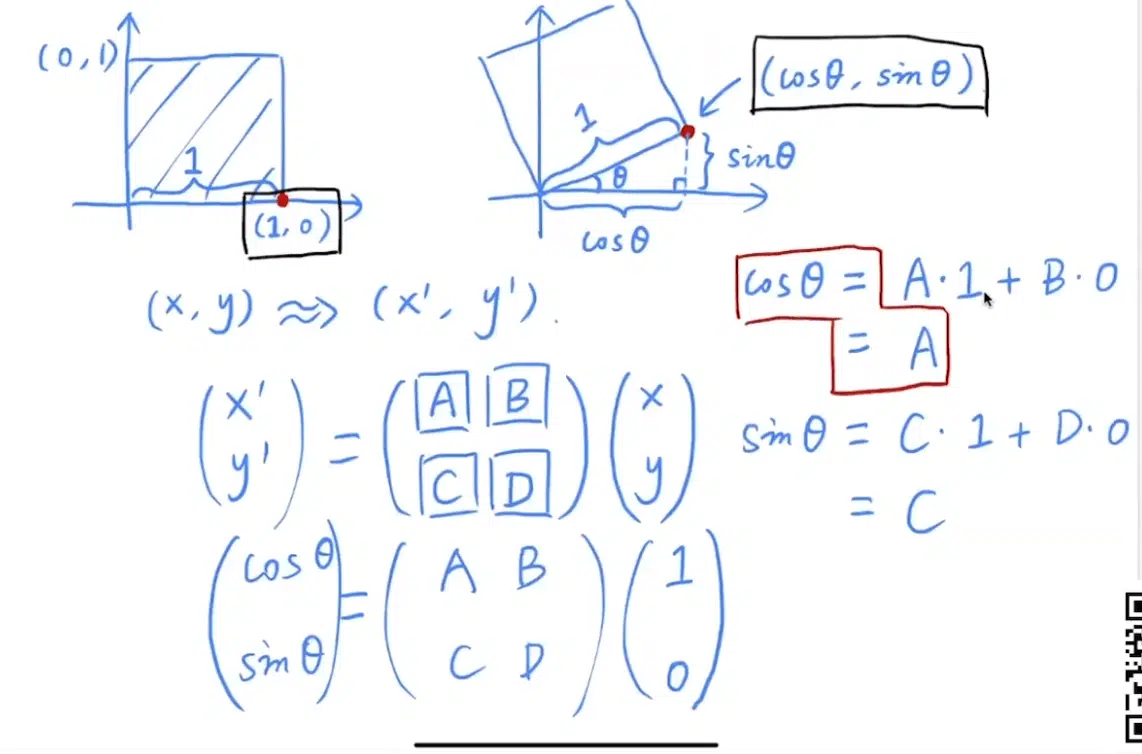 (0, 1)
1
(1, 0)
1
θ
(cosθ, sinθ)
sinθ
cosθ
(x, y) ⇝ (x', y').
(x' y') = (A B C D) (x y)
(cosθ sinθ) = (A B C D) (1 0)
cosθ = A·1 + B·0
= A
sinθ = C·1 + D·0
= C